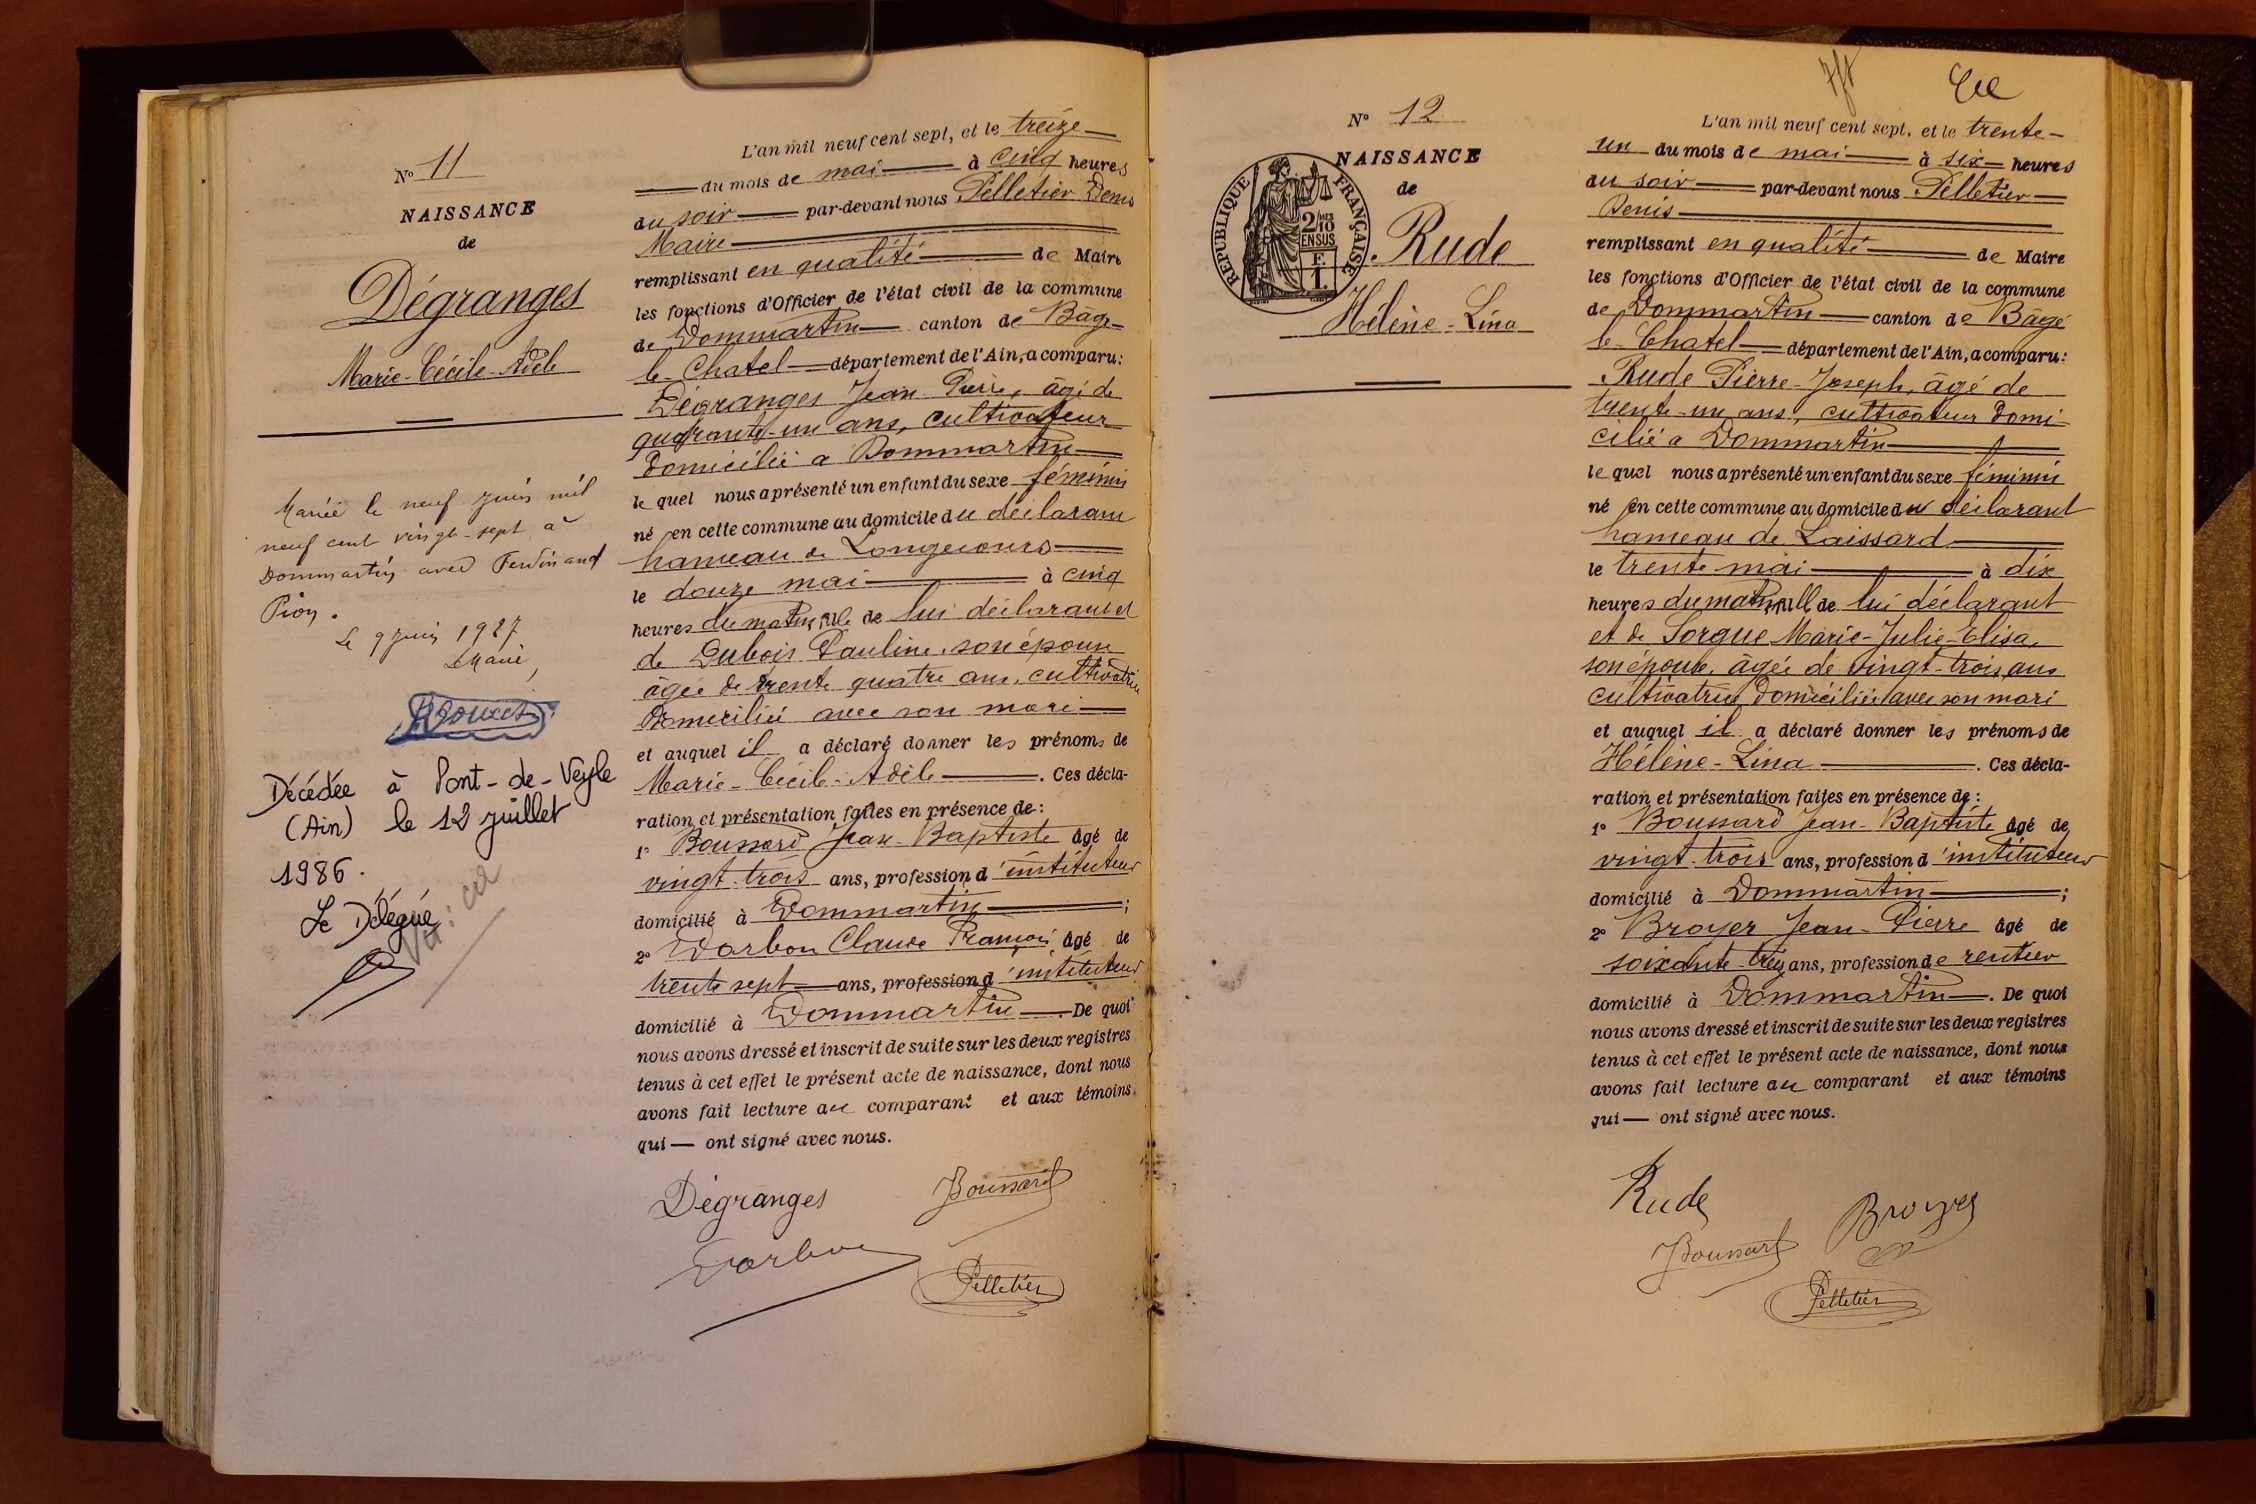 N° 11
NAISSANCE
de
Dégranges
Marie-Cécile-Adèle
Mariée le neuf juin mil
neuf cent vingt-sept à
Dommartin avec Ferdinand
Pion.
Le 9 juin 1927
Le Maire,
Décédée à Pont-de-Veyle
(Ain) le 12 juillet
1986.
Le Délégué
L'an mil neuf cent sept, et le treize
du mois de mai à cinq heures
du soir par-devant nous Pelletier Denis
Maire
remplissant en qualité de Maire
les fonctions d'Officier de l'état civil de la commune
de Dommartin canton de Bâgé-
le-Chatel département de l'Ain, a comparu:
Dégranges Jean Pierre, âgé de
quarante-un ans, cultivateur
domicilié à Dommartin
le quel nous a présenté un enfant du sexe féminin
né en cette commune au domicile du déclarant
hameau de Longecours
le douze mai à cinq
heures du matin, fille de lui déclarant et
de Dubois Pauline, son épouse
âgée de trente quatre ans, cultivatrice
domiciliée avec son mari
et auquel il a déclaré donner les prénoms de
Marie-Cécile-Adèle. Ces décla-
ration et présentation faites en présence de:
1° Boussard Jean-Baptiste âgé de
vingt-trois ans, profession d'instituteur
domicilié à Dommartin;
2° Darbon Claude François âgé de
trente sept ans, profession d'instituteur
domicilié à Dommartin. De quoi
nous avons dressé et inscrit de suite sur les deux registres
tenus à cet effet le présent acte de naissance, dont nous
avons fait lecture au comparant et aux témoins
qui — ont signé avec nous.
Dégranges Boussard
Darbon
Pelletier
N° 12
NAISSANCE
de
RÉPUBLIQUE FRANÇAISE
2/10
EN SUS
F.
1.
Rude
Hélène-Lina
L'an mil neuf cent sept, et le trente-
un du mois de mai à six heures
du soir par-devant nous Pelletier
Denis
remplissant en qualité de Maire
les fonctions d'Officier de l'état civil de la commune
de Dommartin canton de Bâgé
le-Chatel département de l'Ain, a comparu:
Rude Pierre-Joseph, âgé de
trente-un ans, cultivateur domi-
cilié à Dommartin
le quel nous a présenté un enfant du sexe féminin
né en cette commune au domicile du déclarant
hameau de Laissard
le trente mai à dix
heures du matin, fille de lui déclarant
et de Sorgue Marie-Julie-Elisa,
son épouse, âgée de vingt-trois ans
cultivatrice, domiciliée avec son mari
et auquel il a déclaré donner les prénoms de
Hélène-Lina. Ces décla-
ration et présentation faites en présence de:
1° Boussard Jean-Baptiste âgé de
vingt-trois ans, profession d'instituteur
domicilié à Dommartin;
2° Broyer Jean-Pierre âgé de
soixante-treize ans, profession de rentier
domicilié à Dommartin. De quoi
nous avons dressé et inscrit de suite sur les deux registres
tenus à cet effet le présent acte de naissance, dont nous
avons fait lecture au comparant et aux témoins
qui — ont signé avec nous.
Rude
Broyer
Boussard
Pelletier